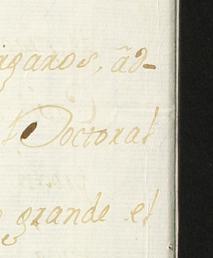 igaros, ãd-
Doctoral
grande el